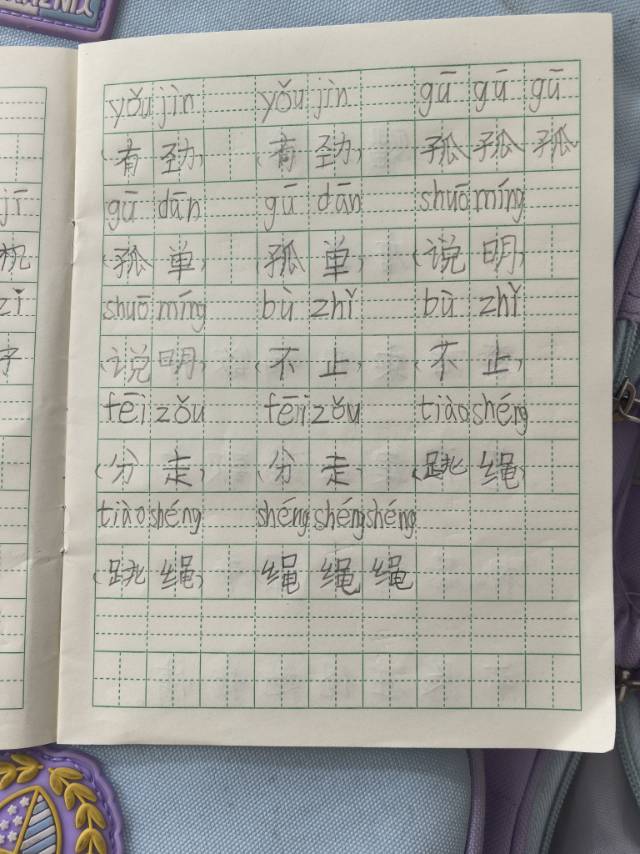 yǒu jìn yǒu jìn gū gū gū
(有 劲) (有 劲) 孤 孤 孤
gū dān gū dān shuō míng
(孤 单) 孤 单) (说 明)
shuō míng bù zhǐ bù zhǐ
(说 明) (不 止) (不 止)
fēi zǒu fēi zǒu tiào shéng
(分 走) (分 走) (跳 绳)
tiào shéng shéng shéng shéng
(跳 绳) 绳 绳 绳
jī
机
zǐ
子